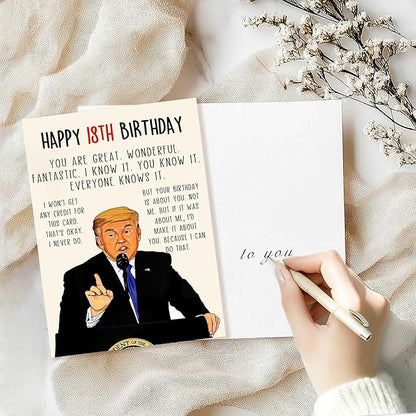 HAPPY 18TH BIRTHDAY
YOU ARE GREAT. WONDERFUL.
FANTASTIC. I KNOW IT. YOU KNOW IT.
EVERYONE KNOWS IT.
I WON'T GET
ANY CREDIT FOR
THIS CARD.
THAT'S OKAY.
I NEVER DO.
BUT YOUR BIRTHDAY
IS ABOUT YOU. NOT
ME. BUT IF IT WAS
ABOUT ME, I'D
MAKE IT ABOUT
YOU. BECAUSE I CAN
DO THAT.
ENT OF THE
to you